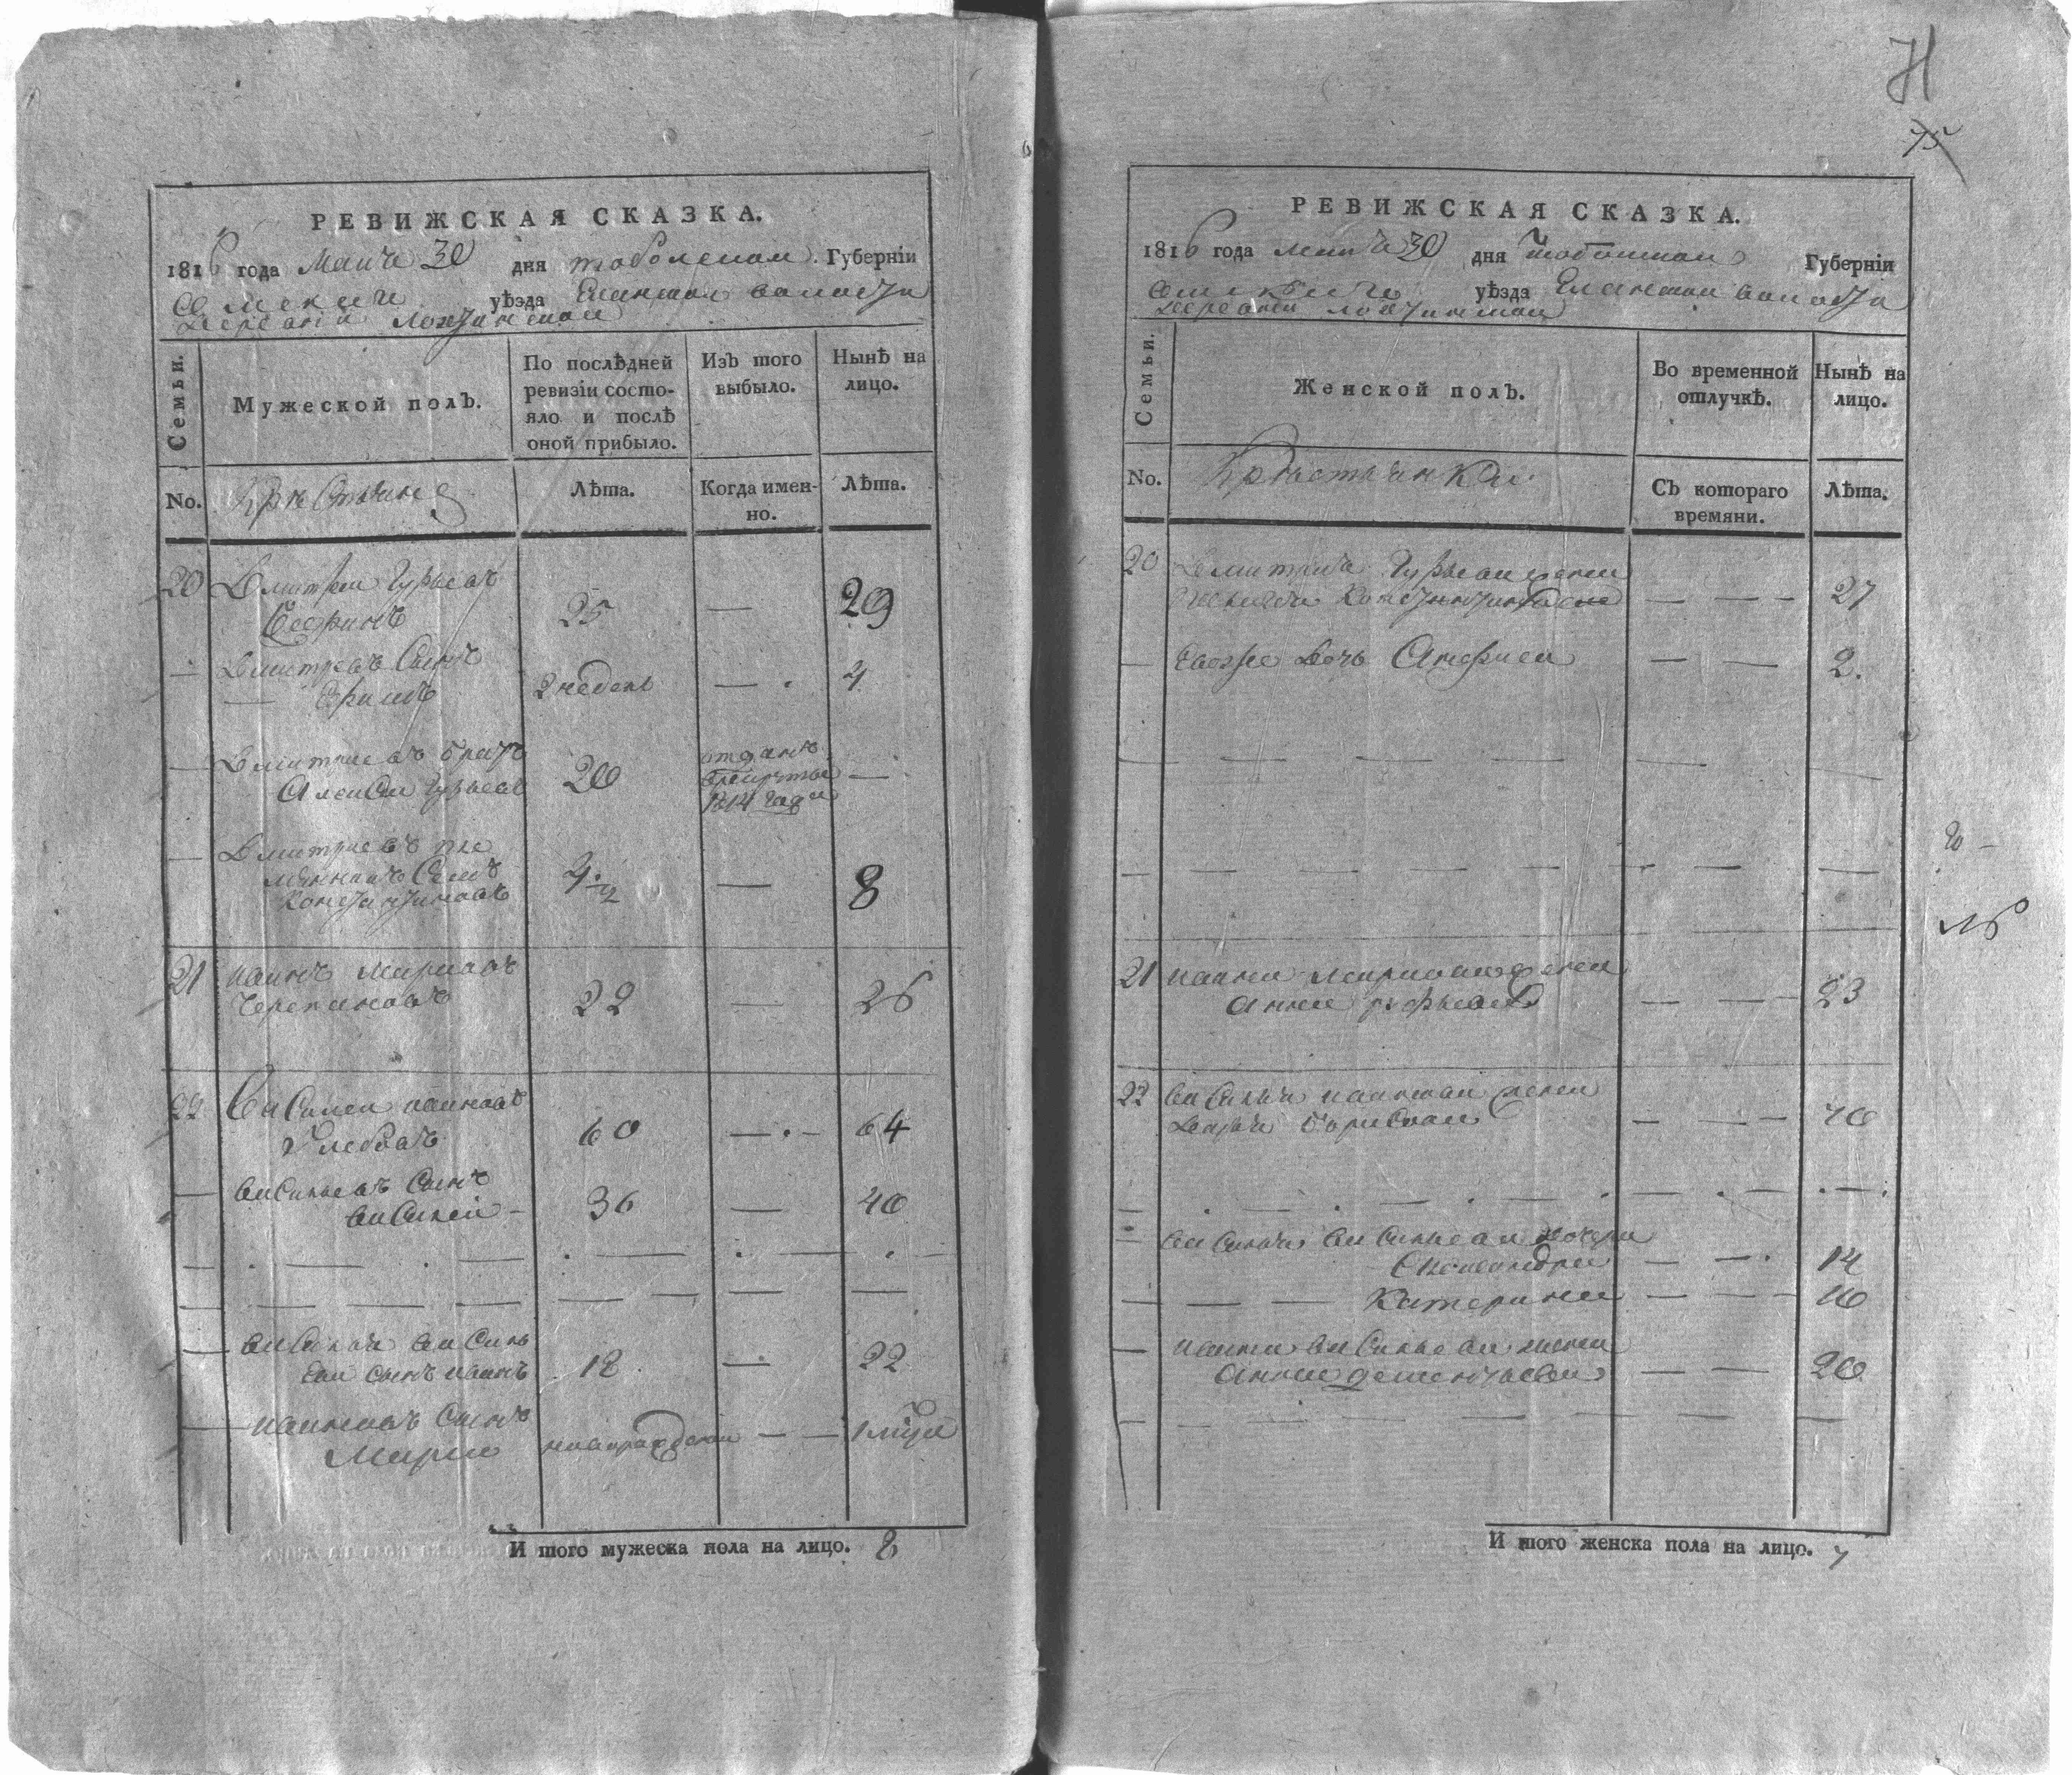 РЕВИЖСКАЯ СКАЗКА.
1816 года Маия 30 дня тоболской Губерніи
Омскаго уѣзда Еланской волости
деревни
Семьи.
Мужеской полъ.
По послѣдней
ревизіи состо-
яло и послѣ
оной прибыло.
Изъ того
выбыло.
Нынѣ на
лицо.
No.
Крестьяне
Лѣта.
Когда имен-
но.
Лѣта.
20 Дмитреи Гурьевъ
25 — 29
— Дмитревъ Сынъ
— Ефимъ 2 недель — 4
— Дмитриевъ братъ
Алексеи Гурьевъ 20 отданъ
в рекруты
1814 года —
— Дмитриевъ пле
мянникъ
Константиновъ 4 1/2 — 8
21 иванъ Марковъ
Черепановъ 22 — 26
22 Василеи ивановъ
Глебовъ 60 — 64
— Васильевъ Сынъ
Василей — 36 — 40
— Васильи Василь
ева сынъ иванъ 18 — 22
— ивановъ Сынъ
Марко новорожденой — 1 мѣсяц
И того мужеска пола на лицо. 8
71
75
РЕВИЖСКАЯ СКАЗКА.
1816 года маия 30 дня тобольской Губерніи
Омскаго уѣзда Еланской волости
деревни
Семьи.
Женской полъ.
Во временной
отлучкѣ.
Нынѣ на
лицо.
No.
Крестьянки
Съ котораго
времяни.
Лѣта.
20 Дмитрия Гурьева жена
Константинова — — — 27
— Евоже дочь — — 2.
21 ивана Маркова жена
Анна — — — 23
22 Василья иванова жена
Дарья борисова — — — 40
— Василья Васильева дочери
Александра — — 14
— — — Катерина — — — 10
— ивана Васильева жена
Анна дементьева — — 20
И того женска пола на лицо. 7